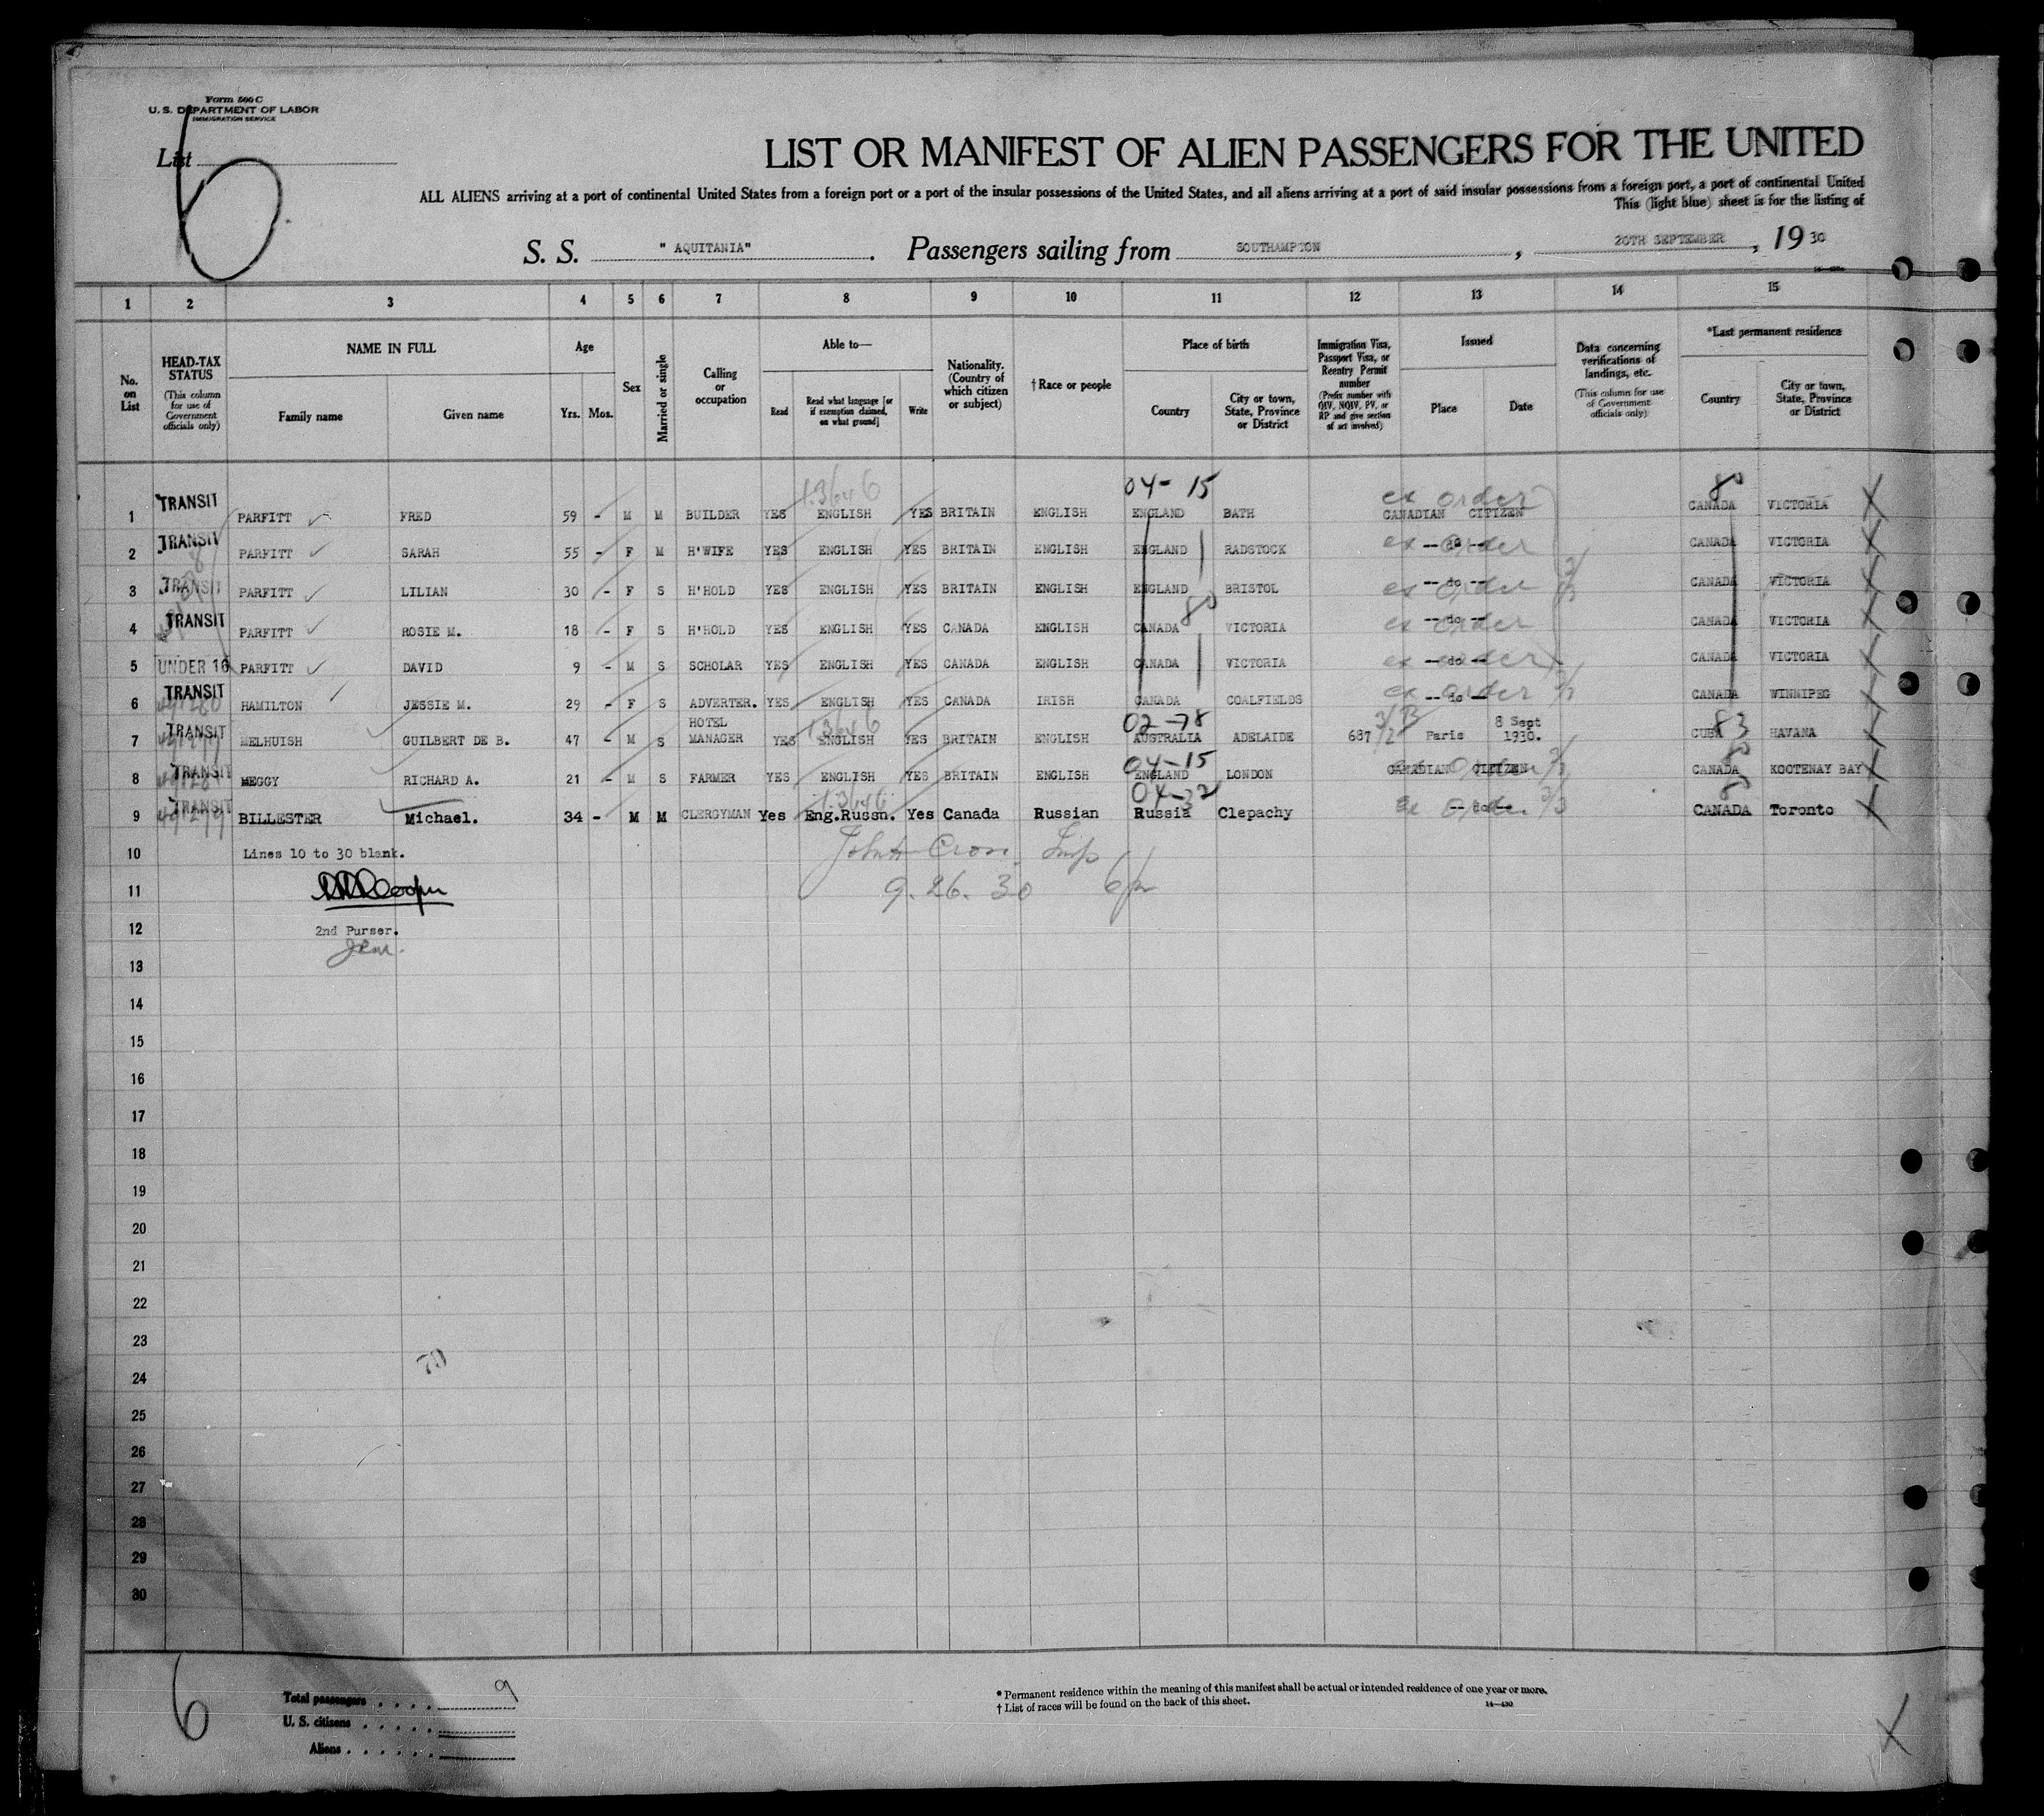 Form 500 C
U. S. DEPARTMENT OF LABOR
IMMIGRATION SERVICE
List
6
LIST OR MANIFEST OF ALIEN PASSENGERS FOR THE UNITED
ALL ALIENS arriving at a port of continental United States from a foreign port or a port of the insular possessions of the United States, and all aliens arriving at a port of said insular possessions from a foreign port, a port of continental United
This (light blue) sheet is for the listing of
S. S. " AQUITANIA" . Passengers sailing from SOUTHAMPTON , 20TH SEPTEMBER , 19 30
1 2 3 4 5 6 7 8 9 10 11 12 13 14 15
No. on List
HEAD-TAX STATUS
(This column for use of Government officials only)
NAME IN FULL
Family name Given name
Age
Yrs. Mos.
Sex
Married or single
Calling or occupation
Able to—
Read
Read what language [or if exemption claimed, on what ground]
Write
Nationality. (Country of which citizen or subject)
† Race or people
Place of birth
Country
City or town, State, Province or District
Immigration Visa, Passport Visa, or Reentry Permit number
(Prefix number with QIV, NQIV, PV, or RP and give section of act involved)
Issued
Place Date
Data concerning verifications of landings, etc.
(This column for use of Government officials only)
*Last permanent residence
Country
City or town, State, Province or District
04- 15 80
1 TRANSIT PARFITT FRED 59 - M M BUILDER YES ENGLISH YES BRITAIN ENGLISH ENGLAND BATH ex order CANADIAN CITIZEN CANADA VICTORIA
2 TRANSIT PARFITT SARAH 55 - F M H'WIFE YES ENGLISH YES BRITAIN ENGLISH ENGLAND RADSTOCK ex order -- do -- CANADA VICTORIA
3 TRANSIT PARFITT LILIAN 30 - F S H'HOLD YES ENGLISH YES BRITAIN ENGLISH ENGLAND BRISTOL ex order -- do -- CANADA VICTORIA
80
4 TRANSIT PARFITT ROSIE M. 18 - F S H'HOLD YES ENGLISH YES CANADA ENGLISH CANADA VICTORIA ex order -- do -- CANADA VICTORIA
5 UNDER 16 PARFITT DAVID 9 - M S SCHOLAR YES ENGLISH YES CANADA ENGLISH CANADA VICTORIA ex order -- do -- CANADA VICTORIA
6 TRANSIT HAMILTON JESSIE M. 29 - F S ADVERTER. YES ENGLISH YES CANADA IRISH CANADA COALFIELDS ex order -- do -- CANADA WINNIPEG
02-78 83
7 TRANSIT MELHUISH GUILBERT DE B. 47 - M S HOTEL MANAGER YES ENGLISH YES BRITAIN ENGLISH AUSTRALIA ADELAIDE 687 Paris 8 Sept 1930. CUBA HAVANA
04-15 80
8 TRANSIT MEGGY RICHARD A. 21 - M S FARMER YES ENGLISH YES BRITAIN ENGLISH ENGLAND LONDON CANADIAN CITIZEN CANADA KOOTENAY BAY
04-32 80
9 TRANSIT BILLESTER Michael. 34 - M M CLERGYMAN Yes Eng.Russn. Yes Canada Russian Russia Clepachy ex order -- do -- CANADA Toronto
10 Lines 10 to 30 blank.
11 9. 26. 30
12 2nd Purser.
13
14
15
16
17
18
19
20
21
22
23
70
24
25
26
27
28
29
30
6
Total passengers . . . . 9
U. S. citizens . . . . .
Aliens . . . . . .
* Permanent residence within the meaning of this manifest shall be actual or intended residence of one year or more.
† List of races will be found on the back of this sheet.
14—430
X